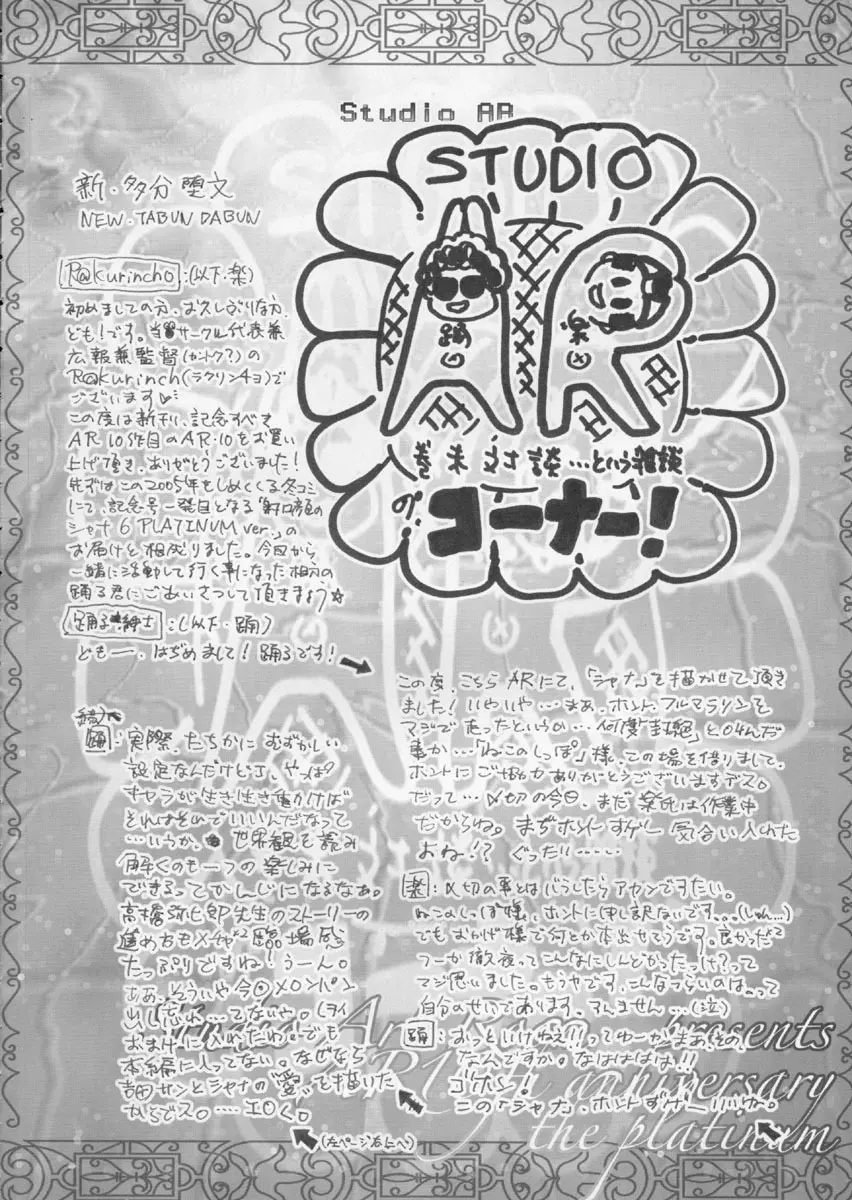 Studio AR
STUDIO
AR
踊
楽
巻末対談…という雑談
の、コーナー!
新・多分堕文
NEW・TABUN DABUN
R@kurincho:(以下・楽)
初めましての方、お久しぶりな方、
ども!です。当サークル代表兼
広報兼監督(カントク?)の
R@kurinch(ラクリンチョ)で
ございます
この度は新刊、記念すべき
AR10作目のAR・10をお買い
上げ頂き、ありがとうございました!
先ずはこの2005年をしめくくる冬コミ
にて、記念号一発目となる「射口顔の
シャナ6 PLATINUM ver.」の
お届けと相成りました。今回から
一緒に活動して行く事になった相方の
踊る君にごあいさつして頂きましょう☆
踊る紳士:(以下・踊)
ども一、はぢめまして!踊るです!
この度、こちらARにて、「シャナ」を描かせて頂き
ました!いやいや…まあ、ホント、フルマラソンを
マジで走ったというか…何度「拒絶」と叫んだ
事か…「ねこのしっぽ」様、この場を借りまして、
ホントにご協力ありがとうございますデス。
だって…〆切の今日、まだ楽氏は作業中
だからね。まぢホントすげー気合い入れた
おね!?ぐったり……
楽:〆切の事とはバラしたらアカンですたい。
ねこのしっぽ様、ホントに申し訳ないです…(しゅん…)
でもおかげ様で何とか本出せそうです。良かった
つーか徹夜ってこんなにしんどかったっけ?って
マジ思いました。もうヤです、こんなつらいのは。って
自分のせいであります。すんません…(泣)
踊:おっといけねえ!!ってゆーか、まあ、その、
なんですか。なはははは!!
ゴホン!
この「シャナ」、ホントすげー
踊:実際、たちかにむずかしい
設定なんだけどさ、やっぱ
キャラが生き生き動かけば
それはそのでいいんだなって
…いうか、世界観を読み
解くのも一つの楽しみに
できるってかんじになるなぁ。
高橋弥七郎先生のストーリーの
進め方もメチャ臨場感
たっぷりですね!うーん。
ああ、そういや今回メロンパン
出し忘れ…てないや。
おまけに入れたわ。でも
本編に入ってない。なぜなら
吉田サンとシャナの「愛」を描いた
からでス。……エロく。
(左ページ右上へ)
presents
anniversary
the platinum